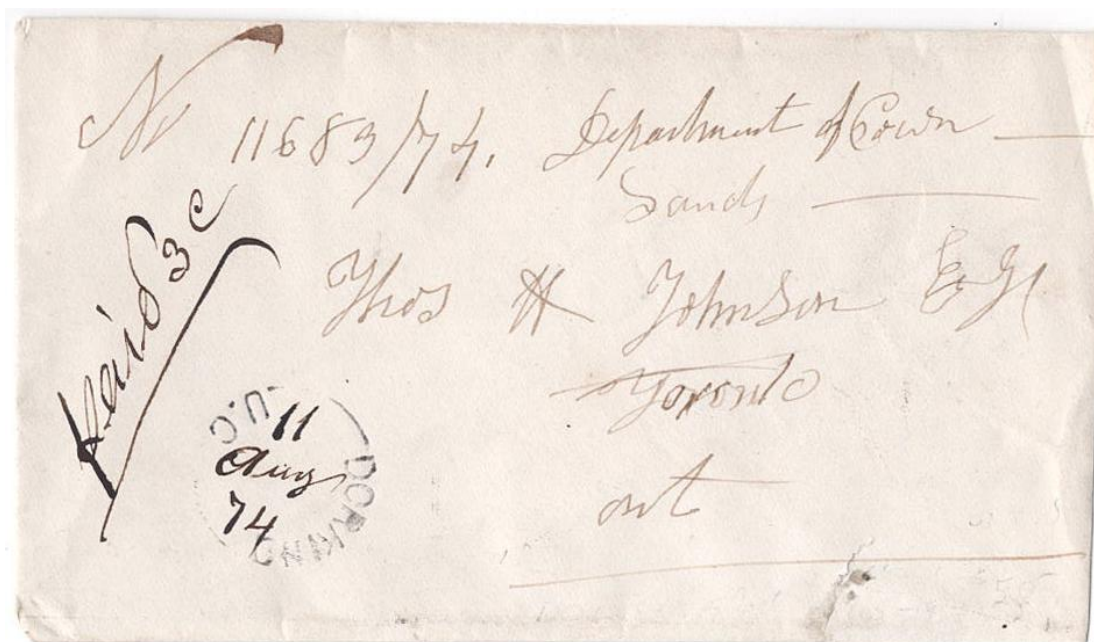 No 11683/74. Department of Crown
Lands
Thos H Johnson Esq
Toronto
ont
Paid 3c
DORKING U.C.
11
Aug
74